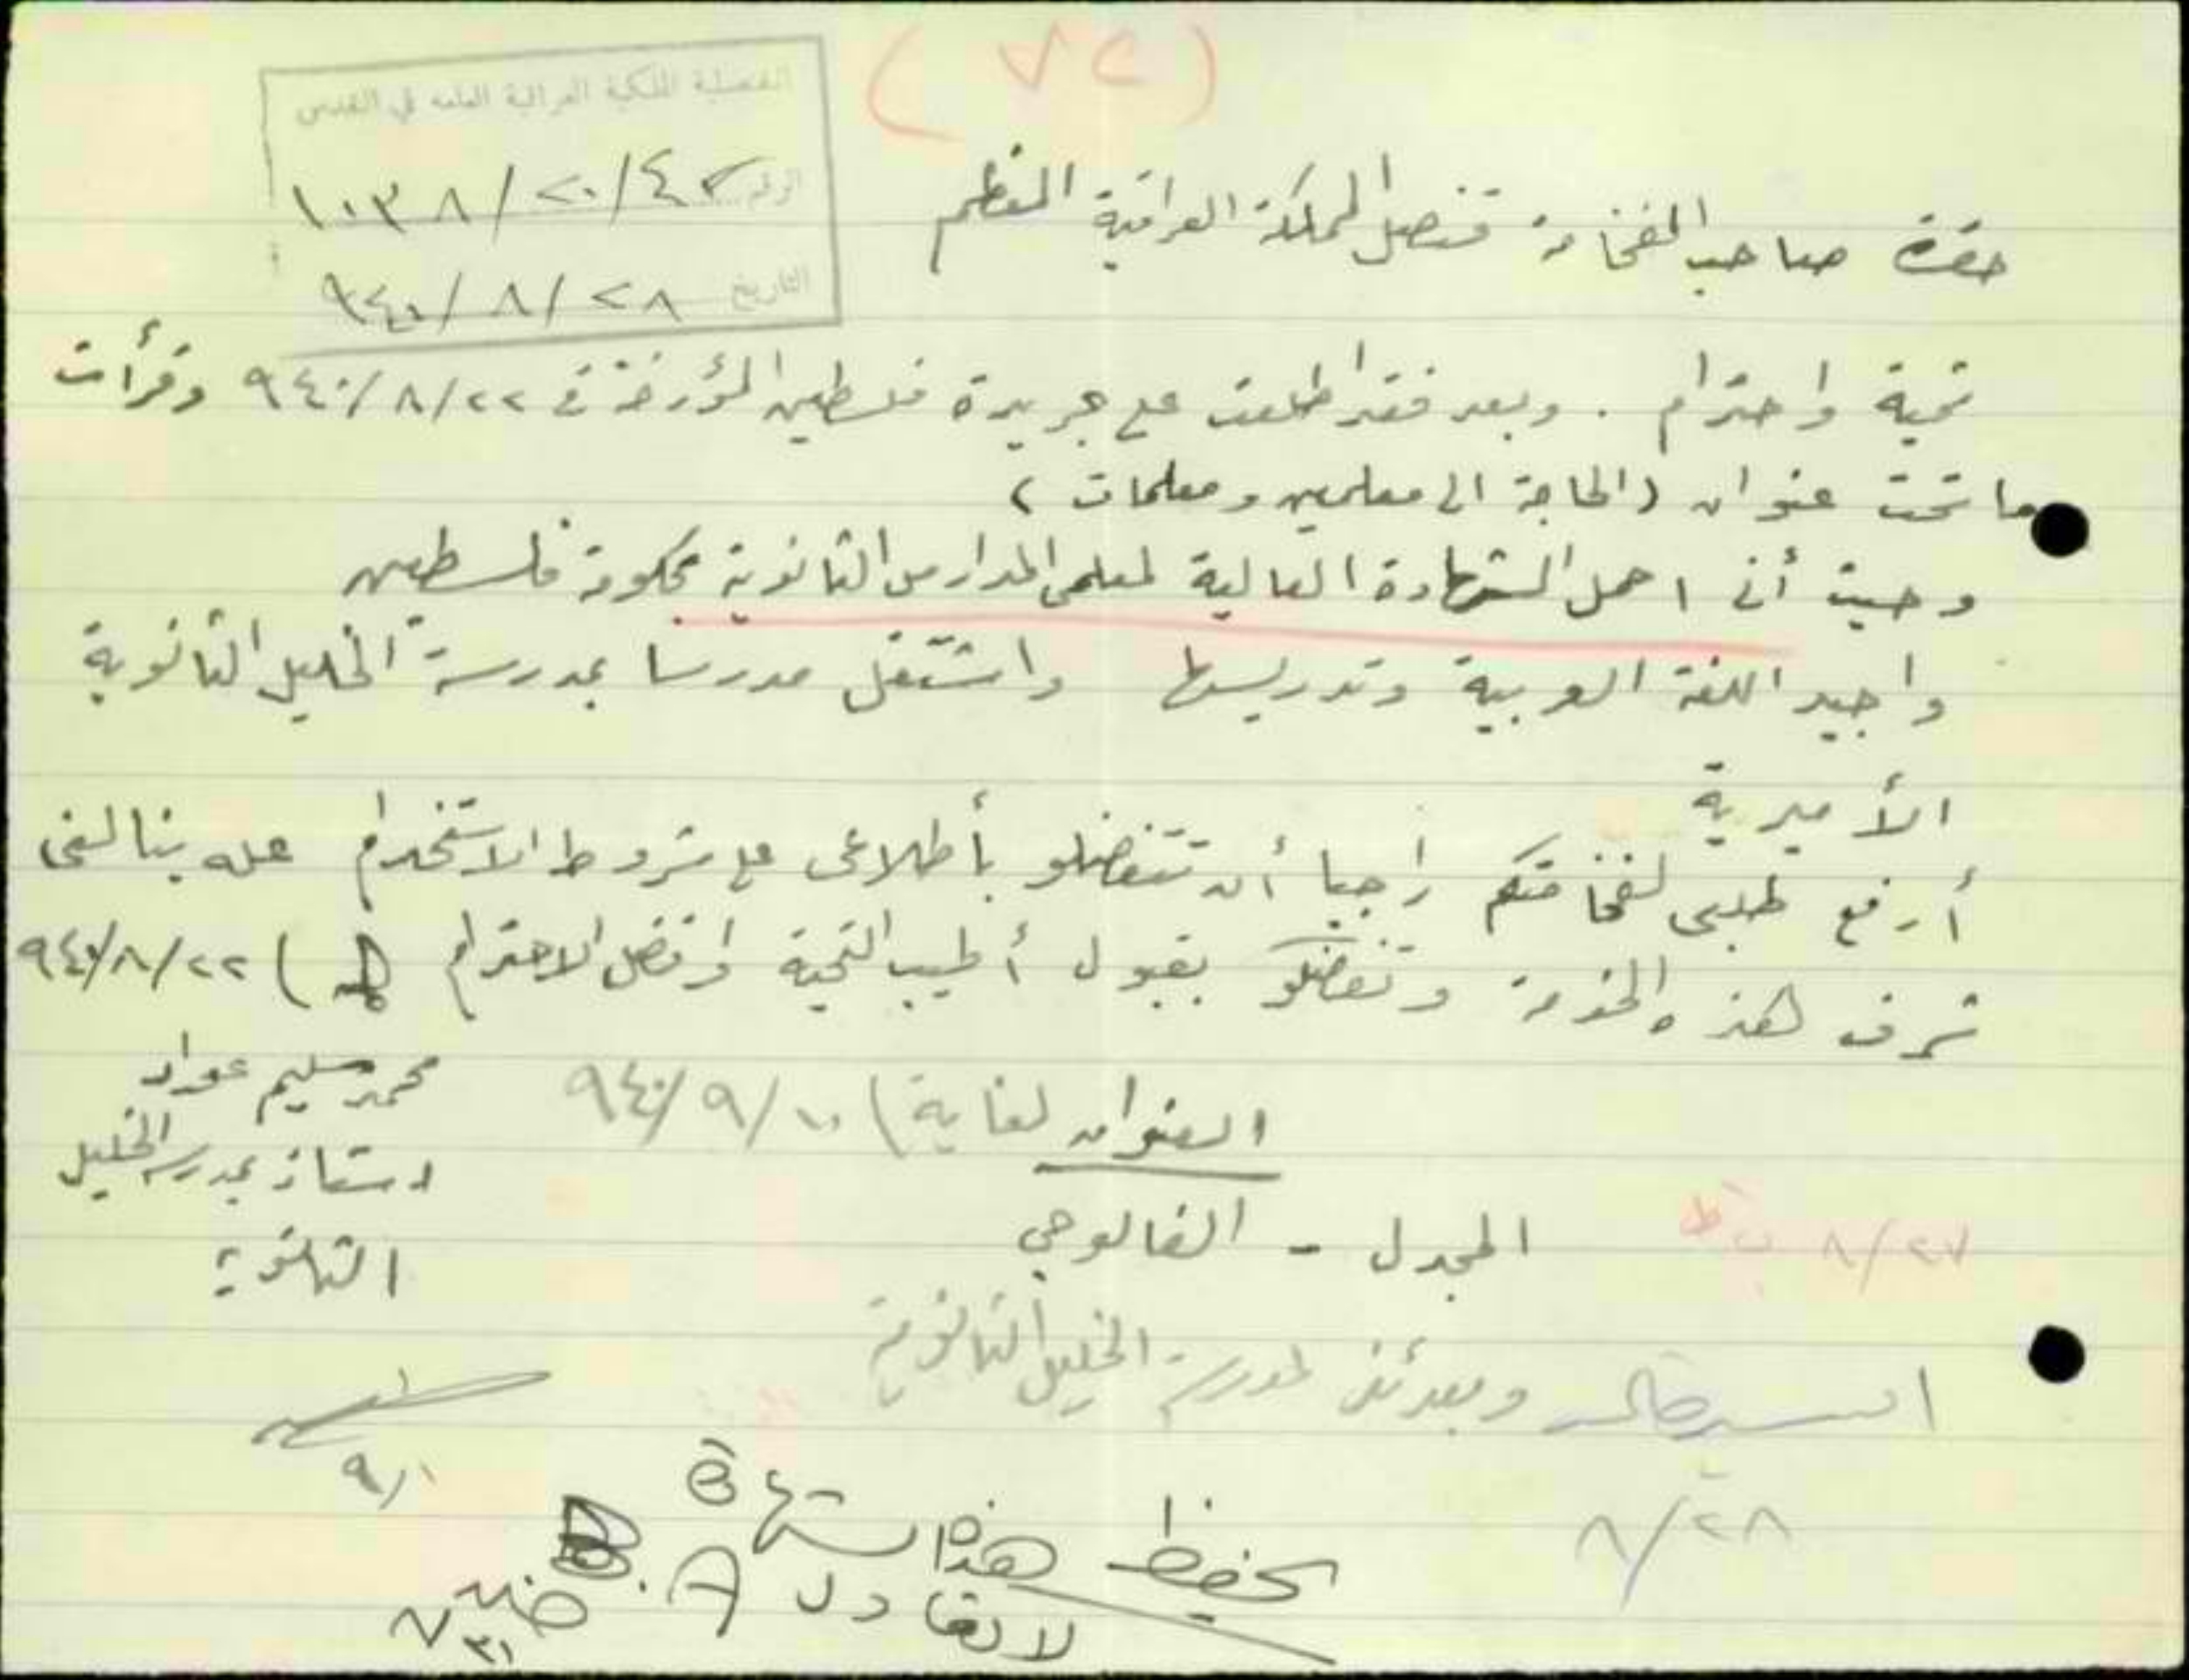 (٧٢)
القنصلية الملكية العراقية العامة في القدس
الرقم ١٠٣٨/٢٠/٤٢
التاريخ ٩٤٠/٨/٢٨
حضرة صاحب الفخامة قنصل المملكة العراقية المعظم
تحية واحترام . وبعد فقد اطلعت على جريدة فلسطين المؤرخة في ٩٤٠/٨/٢٢ وقرأت
ما تحت عنوان (الحاجة الى معلمين ومعلمات )
وحيث أني احمل الشهادة العالية لمعلمي المدارس الثانوية بحكومة فلسطين
واجيد اللغة العربية وتدريسها واشتغل مدرسا بمدرسة الخليل الثانوية
الأميرية
أرفع طلبي لفخامتكم راجيا أن تتفضلو بأطلاعي على شروط الاستخدام عله ينالني
شرف هذه الخدمة وتفضلو بقبول أطيب التحية وافضل الاحترام ) ٩٤٠/٨/٢٢
محمد سليم عواد
استاذ بمدرسة الخليل
الثانوية
العنوان لغاية ) ٩٤٠/٩/١٠
المجدل - الفالوجي
وبعدئذ لمدرسة الخليل الثانوية
٨/٢٧
السيد
٨/٢٨
٩/١
يحفظ هذا
لا تعادل